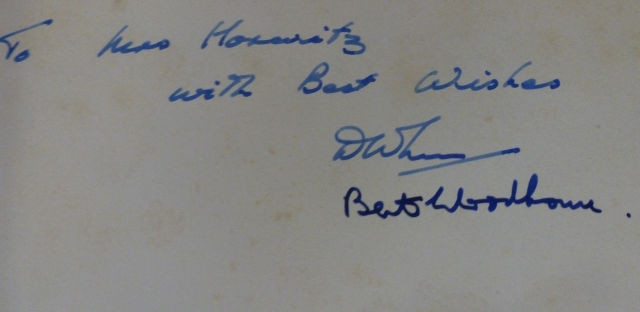 To Mrs Horowitz
with Best Wishes
Bert Woodhouse.